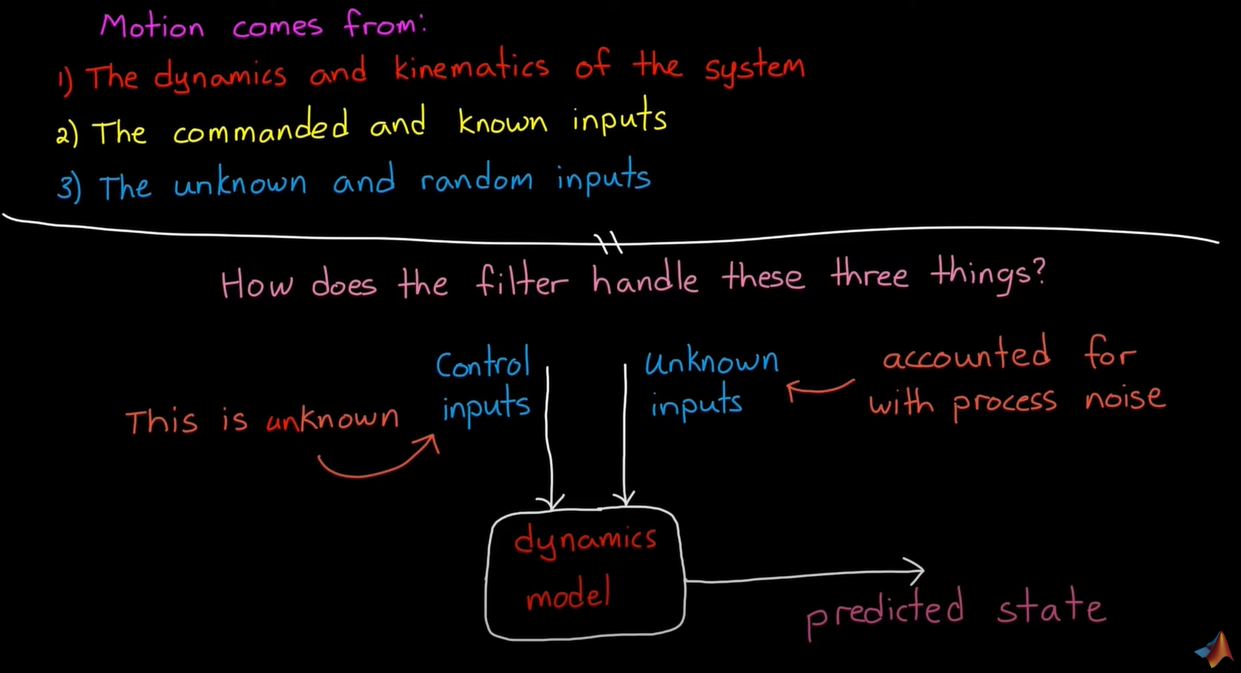 Motion comes from:
1) The dynamics and kinematics of the system
2) The commanded and known inputs
3) The unknown and random inputs
How does the filter handle these three things?
Control
inputs
Unknown
inputs
accounted for
with process noise
This is unknown
dynamics
model
predicted state